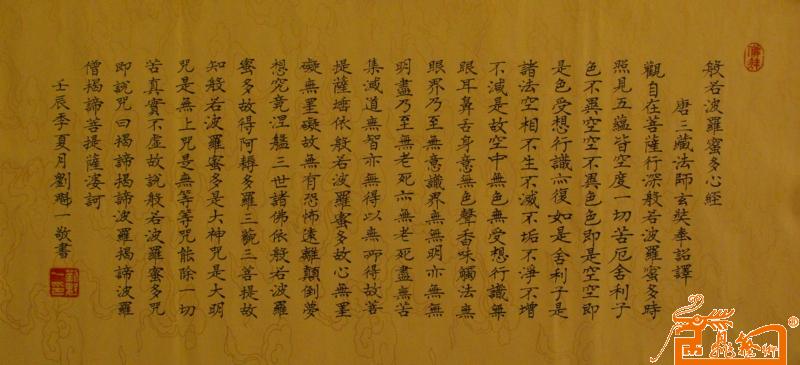 般若波羅蜜多心經
唐三藏法師玄奘奉詔譯
觀自在菩薩行深般若波羅蜜多時
照見五蘊皆空度一切苦厄舍利子
色不異空空不異色色即是空空即
是色受想行識亦復如是舍利子是
諸法空相不生不滅不垢不淨不增
不減是故空中無色無受想行識無
眼耳鼻舌身意無色聲香味觸法無
眼界乃至無意識界無無明亦無無
明盡乃至無老死亦無老死盡無苦
集滅道無智亦無得以無所得故菩
提薩埵依般若波羅蜜多故心無罣
礙無罣礙故無有恐怖遠離顛倒夢
想究竟涅槃三世諸佛依般若波羅
蜜多故得阿耨多羅三藐三菩提故
知般若波羅蜜多是大神咒是大明
咒是無上咒是無等等咒能除一切
苦真實不虛故說般若波羅蜜多咒
即說咒曰揭諦揭諦波羅揭諦波羅
僧揭諦菩提薩婆訶
壬辰季夏月劉一敬書